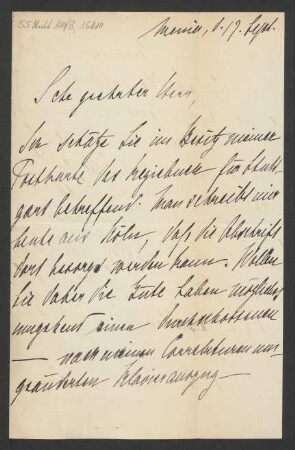 55 Nachl 100/B, 
d. 19. Sept.
Sehr geehrter Herr,
Ich schätze Sie im Besitz meiner
Postkarte das Regiebuch für Stutt-
gart betreffend. Man schreibt mir
heute aus Köln, daß die Abschrift
dort besorgt werden kann. Wollen
Sie daher die Güte haben möglichst
umgehend einen durchschossenen
— nach meinen Correkturen um-
geänderten Klavierauszug —